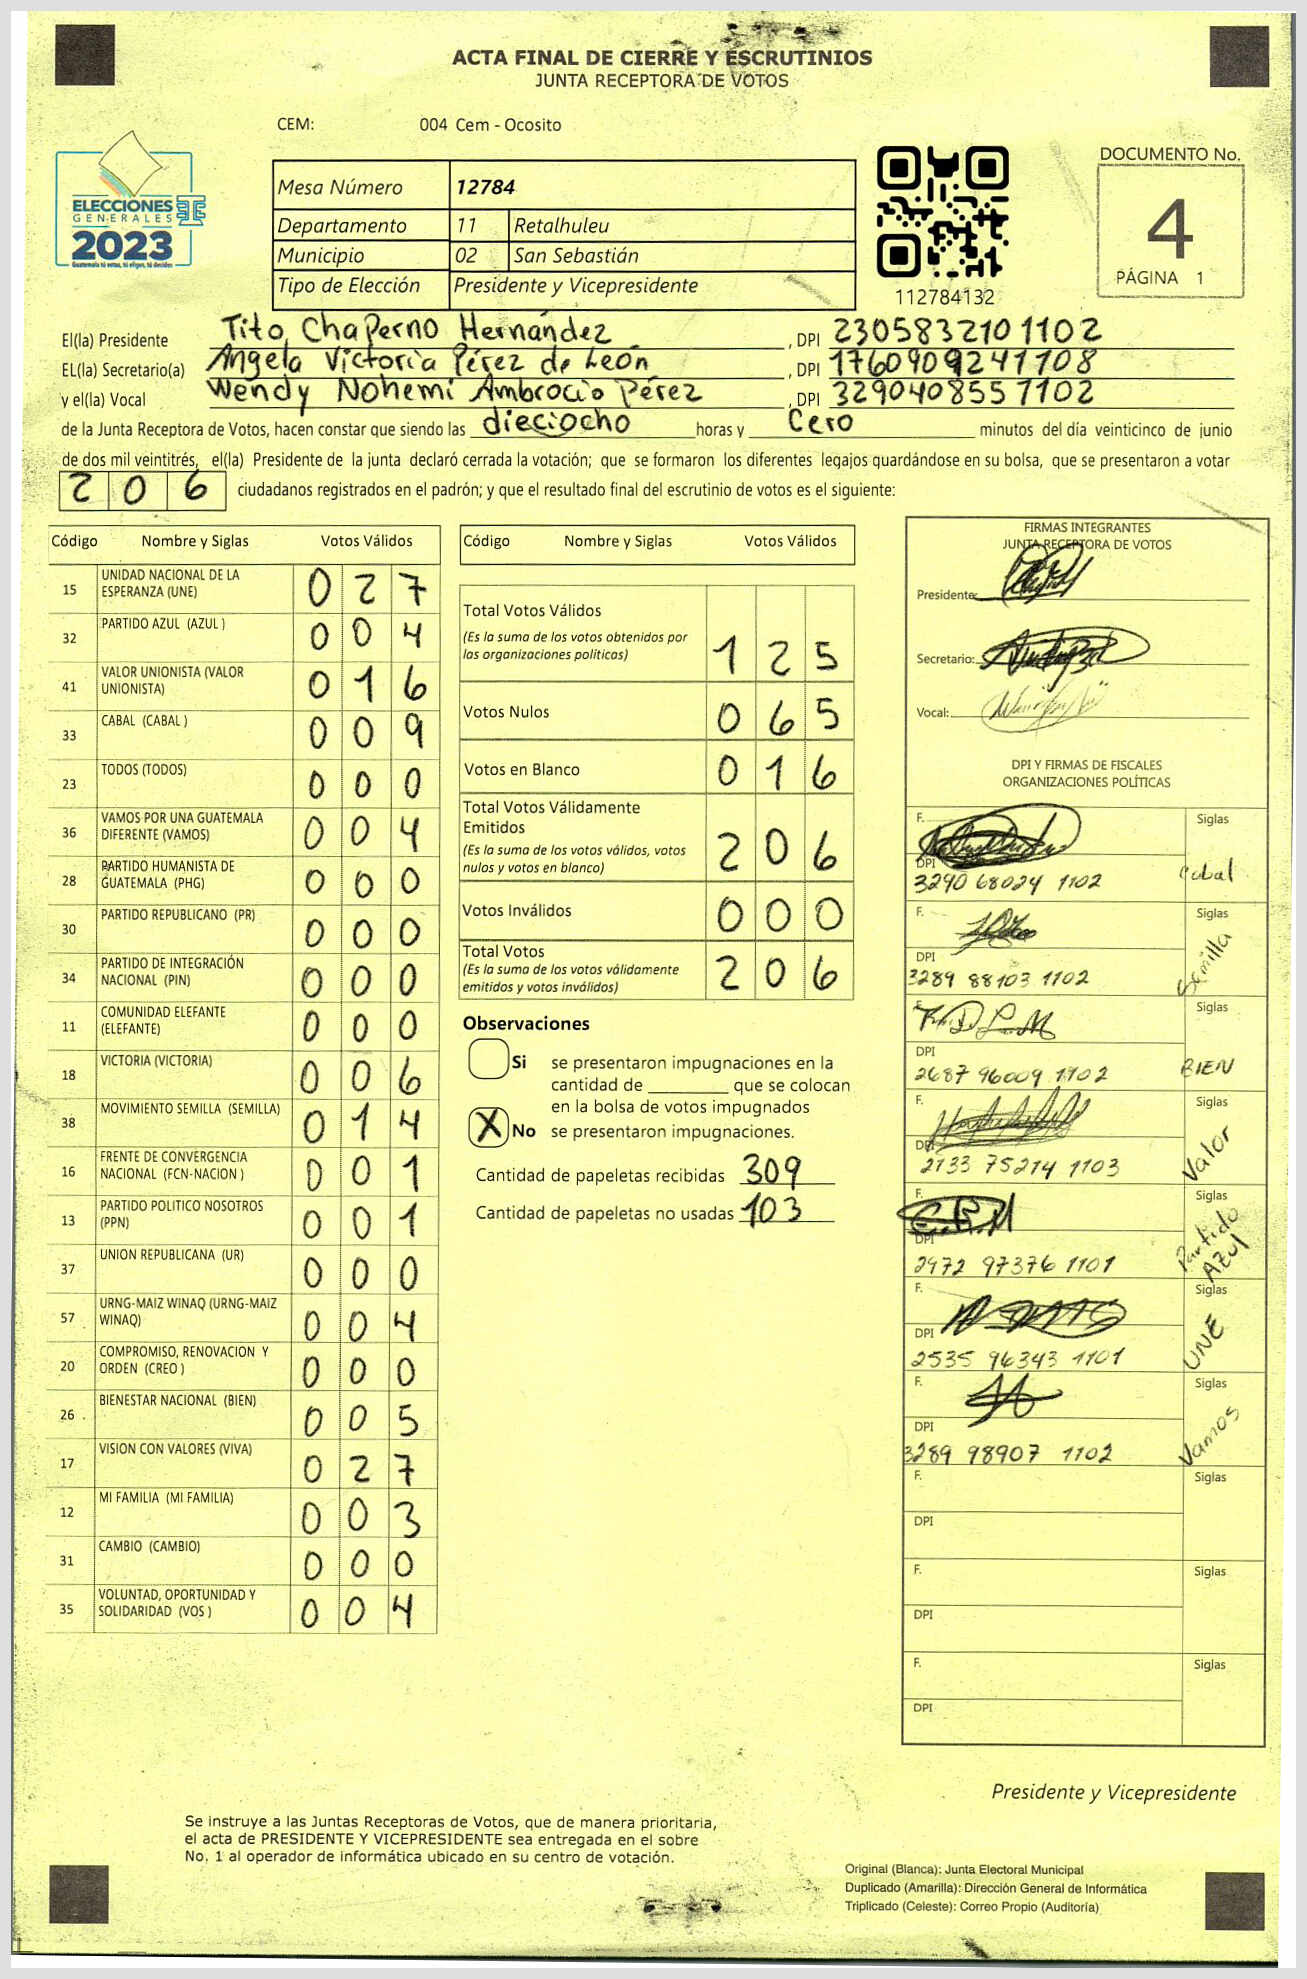 ACTA FINAL DE CIERRE Y ESCRUTINIOS
JUNTA RECEPTORA DE VOTOS
CEM: 004 Cem - Ocosito
ELECCIONES
GENERALES
2023
Guatemala tú votas, tú eliges, tú decides
Mesa Número 12784
Departamento 11 Retalhuleu
Municipio 02 San Sebastián
Tipo de Elección Presidente y Vicepresidente
112784132
DOCUMENTO No.
4
PÁGINA 1
El(la) Presidente Tito Chaperno Hernández, DPI 2305832101102
EL(la) Secretario(a) Angela Victoria Pérez de León, DPI 1760909241108
y el(la) Vocal Wendy Nohemi Ambrocio Pérez, DPI 3290408557102
de la Junta Receptora de Votos, hacen constar que siendo las dieciocho horas y Cero minutos del día veinticinco de junio
de dos mil veintitrés, el(la) Presidente de la junta declaró cerrada la votación; que se formaron los diferentes legajos guardándose en su bolsa, que se presentaron a votar
206 ciudadanos registrados en el padrón; y que el resultado final del escrutinio de votos es el siguiente:
Código Nombre y Siglas Votos Válidos
15 UNIDAD NACIONAL DE LA ESPERANZA (UNE) 027
32 PARTIDO AZUL (AZUL ) 004
41 VALOR UNIONISTA (VALOR UNIONISTA) 016
33 CABAL (CABAL ) 009
23 TODOS (TODOS) 000
36 VAMOS POR UNA GUATEMALA DIFERENTE (VAMOS) 004
28 PARTIDO HUMANISTA DE GUATEMALA (PHG) 000
30 PARTIDO REPUBLICANO (PR) 000
34 PARTIDO DE INTEGRACIÓN NACIONAL (PIN) 000
11 COMUNIDAD ELEFANTE (ELEFANTE) 000
18 VICTORIA (VICTORIA) 006
38 MOVIMIENTO SEMILLA (SEMILLA) 014
16 FRENTE DE CONVERGENCIA NACIONAL (FCN-NACION ) 001
13 PARTIDO POLITICO NOSOTROS (PPN) 001
37 UNION REPUBLICANA (UR) 000
57 URNG-MAIZ WINAQ (URNG-MAIZ WINAQ) 004
20 COMPROMISO, RENOVACION Y ORDEN (CREO ) 000
26 BIENESTAR NACIONAL (BIEN) 005
17 VISION CON VALORES (VIVA) 027
12 MI FAMILIA (MI FAMILIA) 003
31 CAMBIO (CAMBIO) 000
35 VOLUNTAD, OPORTUNIDAD Y SOLIDARIDAD (VOS ) 004
Código Nombre y Siglas Votos Válidos
Total Votos Válidos
(Es la suma de los votos obtenidos por
las organizaciones políticas) 125
Votos Nulos 065
Votos en Blanco 016
Total Votos Válidamente
Emitidos
(Es la suma de los votos válidos, votos
nulos y votos en blanco) 206
Votos Inválidos 000
Total Votos
(Es la suma de los votos válidamente
emitidos y votos inválidos) 206
Observaciones
Si se presentaron impugnaciones en la
cantidad de ________ que se colocan
en la bolsa de votos impugnados
X No se presentaron impugnaciones.
Cantidad de papeletas recibidas 309
Cantidad de papeletas no usadas 103
FIRMAS INTEGRANTES
JUNTA RECEPTORA DE VOTOS
Presidente:
Secretario:
Vocal:
DPI Y FIRMAS DE FISCALES
ORGANIZACIONES POLÍTICAS
F. Siglas
DPI
3290 68024 1102 Cabal
F. Siglas
DPI
3289 88103 1102 Semilla
F. Siglas
DPI
2687 96009 1102 BIEN
F. Siglas
DPI
2133 75214 1103 Valor
F. Siglas
DPI
2972 97376 1101 Partido Azul
F. Siglas
DPI
2535 96343 1101 UNE
F. Siglas
DPI
3289 98907 1102 Vamos
F. Siglas
DPI
F. Siglas
DPI
F. Siglas
DPI
Presidente y Vicepresidente
Se instruye a las Juntas Receptoras de Votos, que de manera prioritaria,
el acta de PRESIDENTE Y VICEPRESIDENTE sea entregada en el sobre
No. 1 al operador de informática ubicado en su centro de votación.
Original (Blanca): Junta Electoral Municipal
Duplicado (Amarilla): Dirección General de Informática
Triplicado (Celeste): Correo Propio (Auditoría)